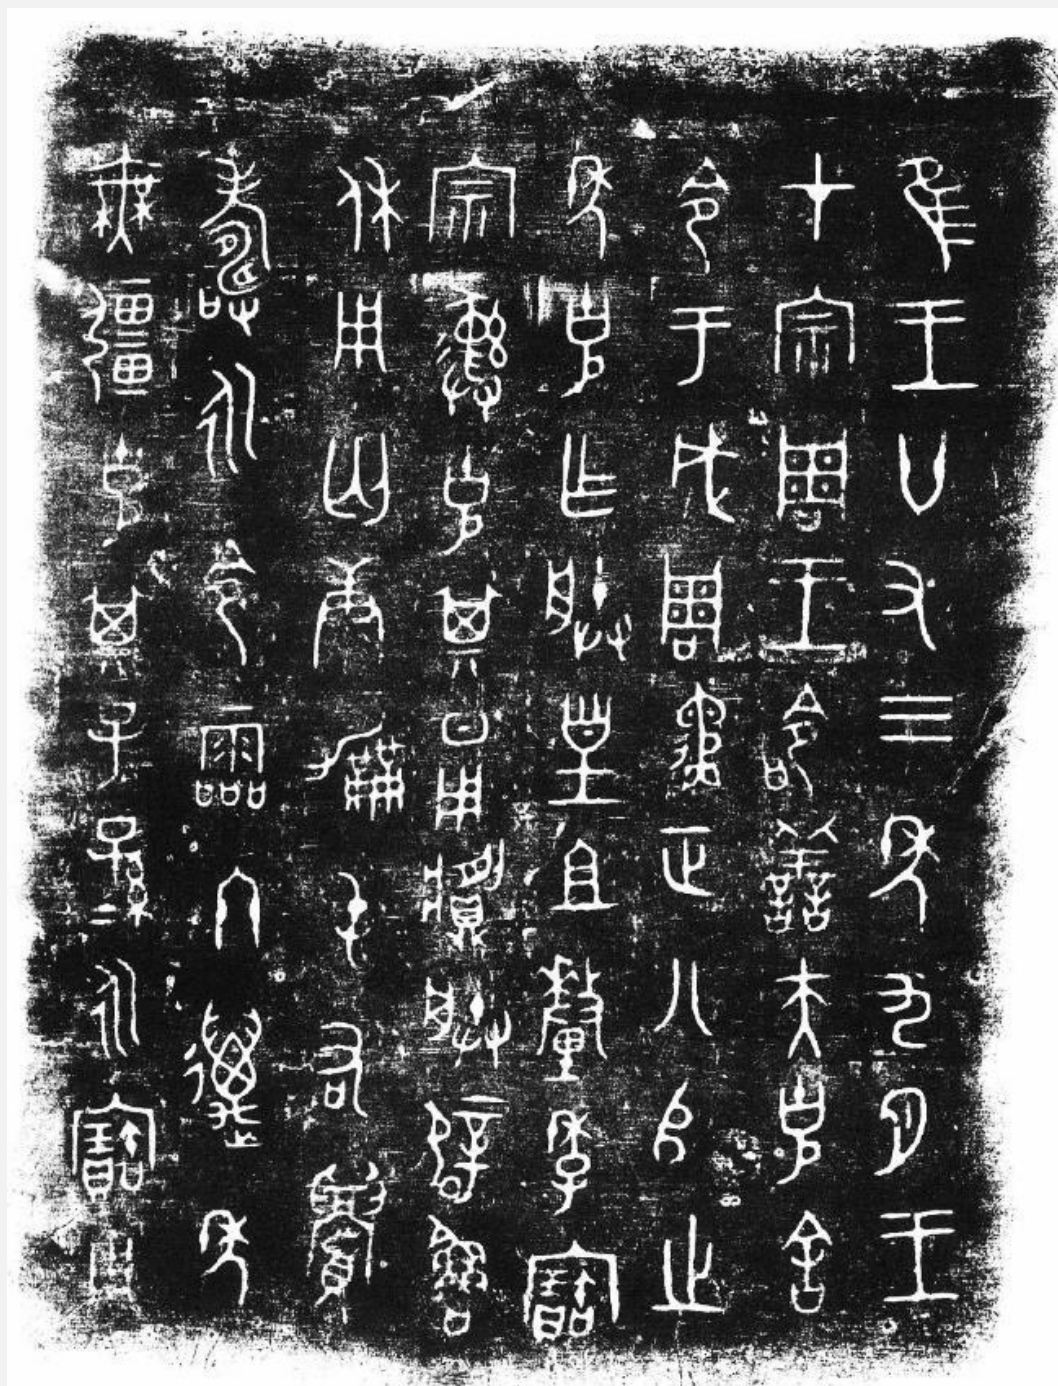 隹王廿又三年九月王
才宗周王令善夫克舍
令于成周遹正八𠂤之
年克乍朕皇且釐季寶
宗彝克其日用𩰫朕辟魯
休用匄康勵屯右眉
壽永令霝冬邁年
無疆克其子子孫孫永寶用